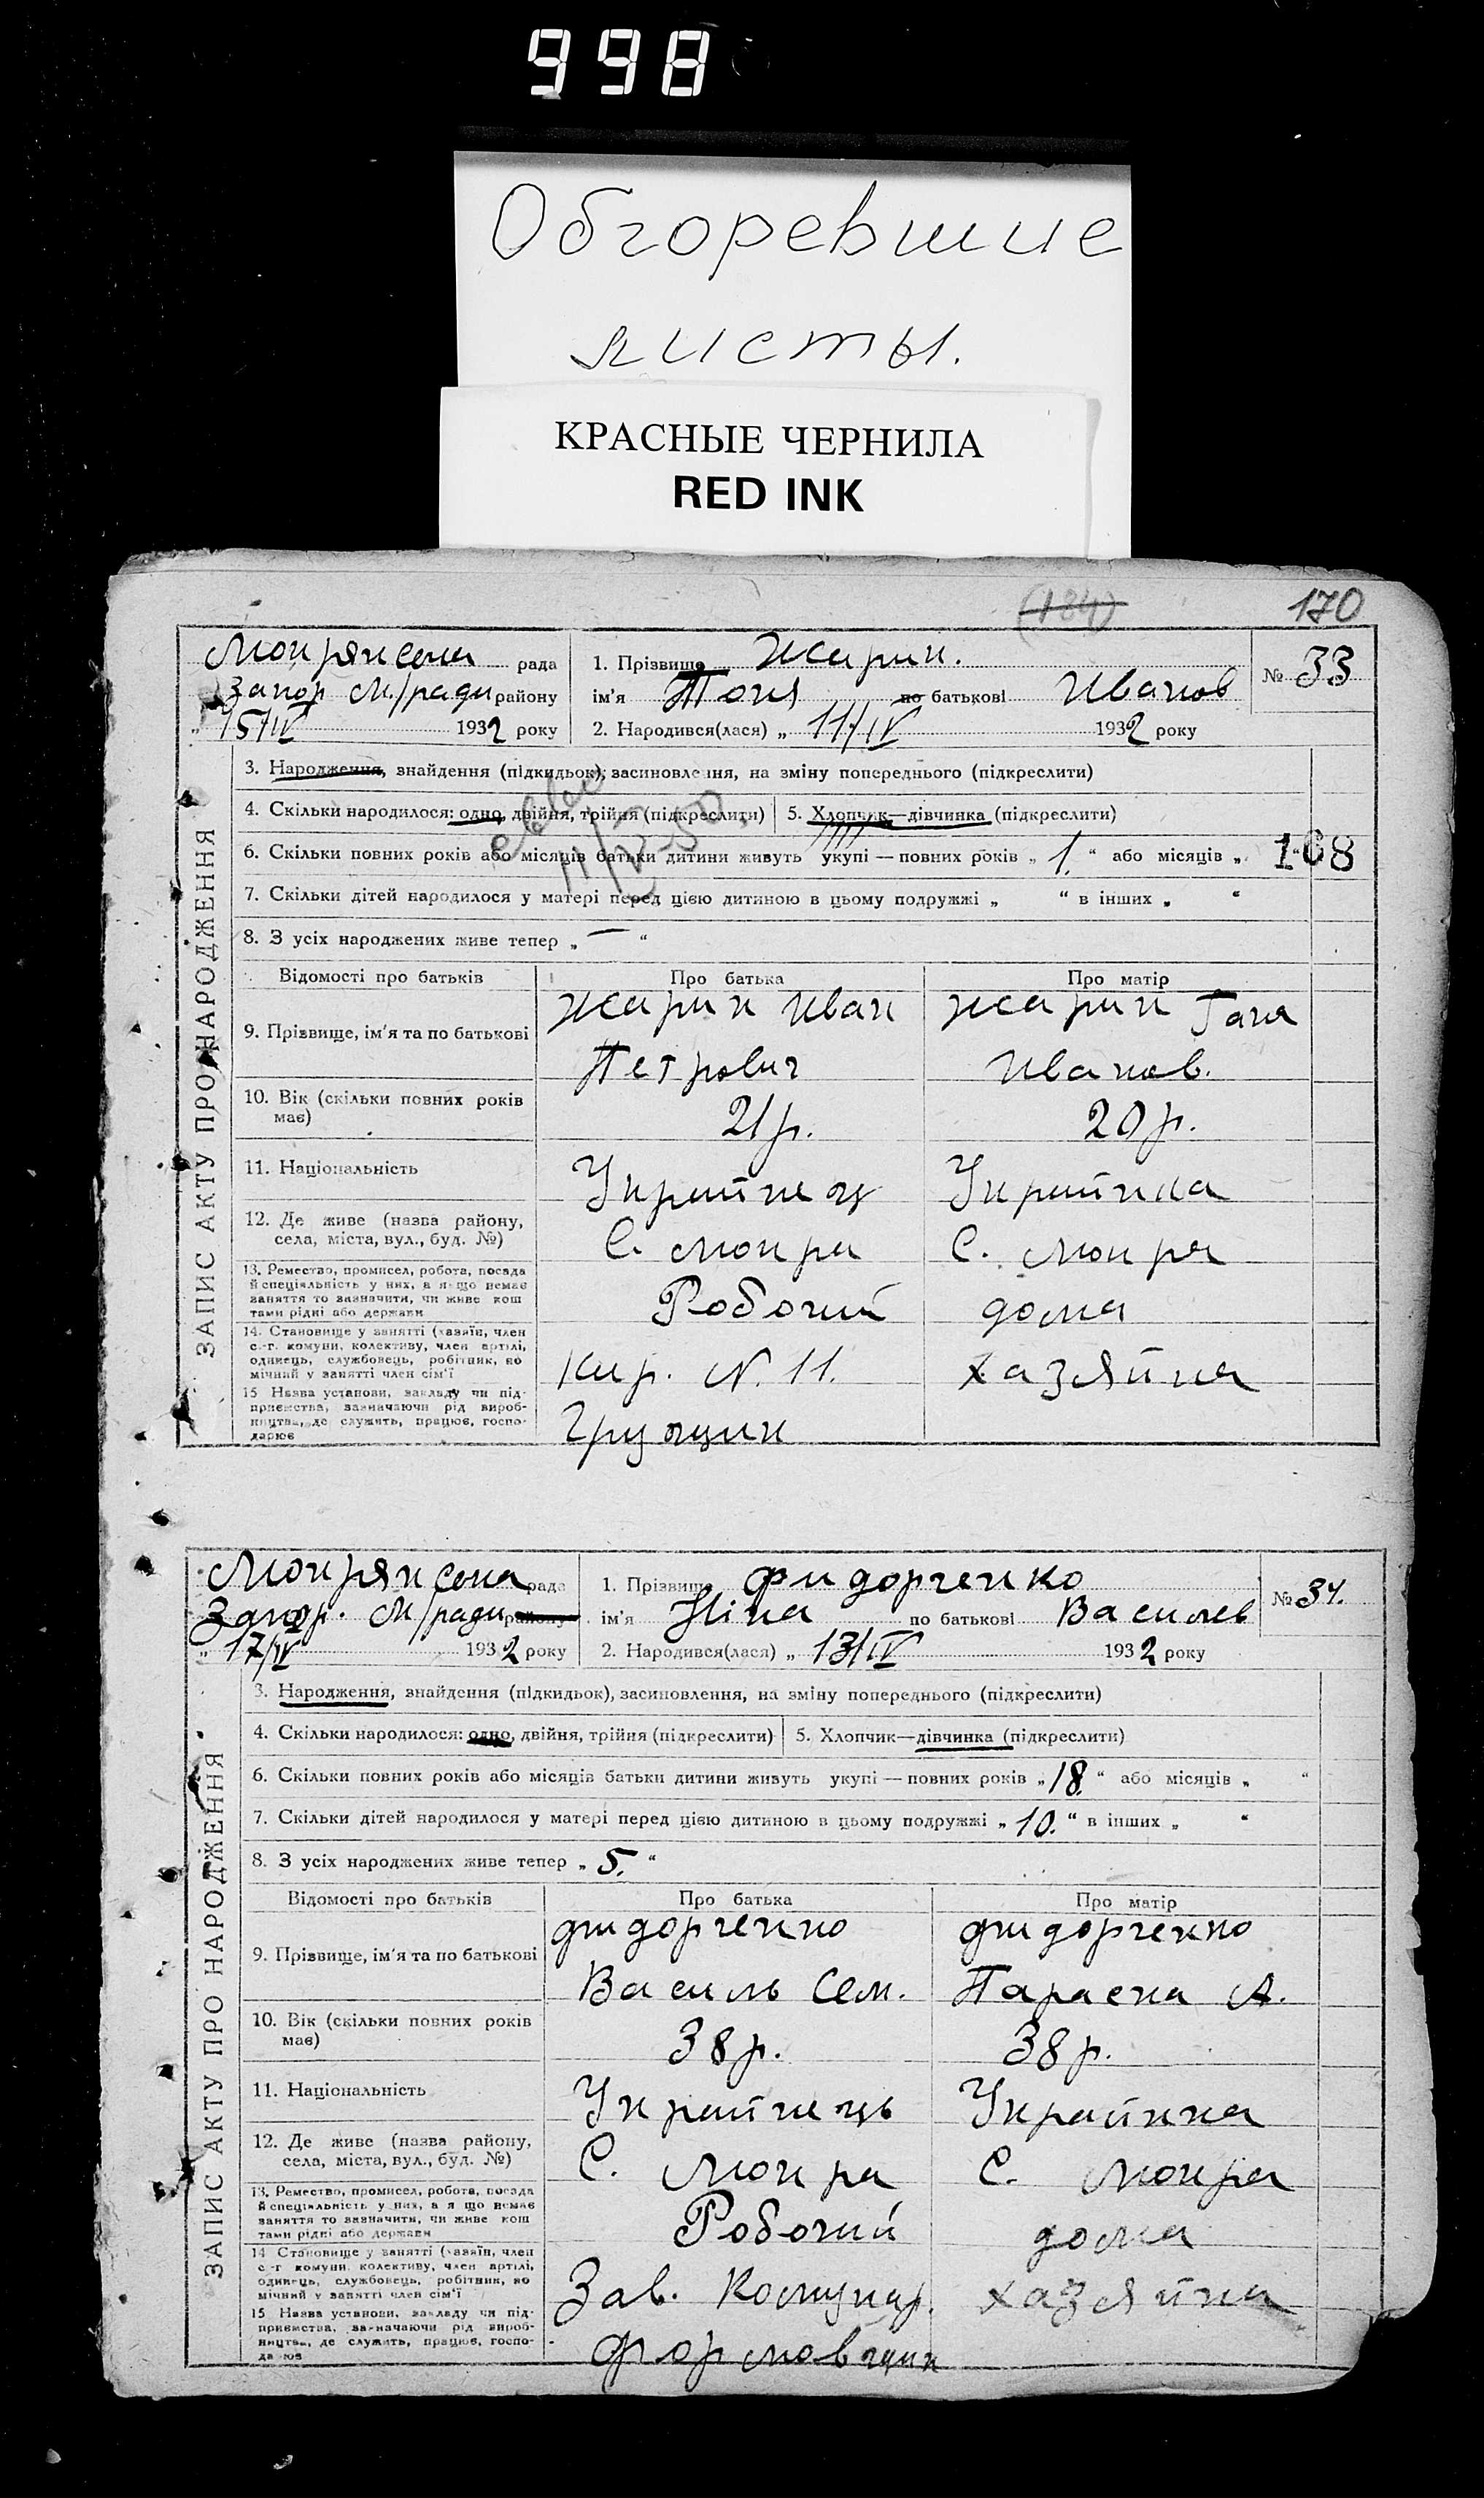 998
Обгоревшие
листы.
КРАСНЫЕ ЧЕРНИЛА
RED INK
(184) 170
Мокрянська рада
Запор м/ради району
„ 15/IV 1932 року
1. Прізвище Жарик.
ім'я Тоня по батькові Иванов
2. Народився(лася) „ 11/IV 1932 року
№ 33
ЗАПИС АКТУ ПРО НАРОДЖЕННЯ
3. Народження, знайдення (підкидьок), засиновлення, на зміну попереднього (підкреслити)
4. Скільки народилося: одно, двійня, трійня (підкреслити) 5. Хлопчик—дівчинка (підкреслити)
6. Скільки повних років або місяців батьки дитини живуть укупі — повних років „ 1. “ або місяців „ “
168
11/IV-50
7. Скільки дітей народилося у матері перед цією дитиною в цьому подружжі „ “ в інших „ “
8. З усіх народжених живе тепер „ — “
Відомості про батьків Про батька Про матір
9. Прізвище, ім'я та по батькові
Жарик Иван Жарик Гана
Петрович Иванов.
10. Вік (скільки повних років
має)
21 р. 20 р.
11. Національність
Украйнец Украйнка
12. Де живе (назва району,
села, міста, вул., буд. №)
С. Мокра С. Мокра
13. Ремество, промисел, робота, посада
й спеціяльність у них, а якщо немає
заняття то зазначити, чи живе кош
тами рідні або держави
Робочий дома
14. Становище у занятті (хазяїн, член
с.-г. комуни, колективу, член артілі,
одинець, службовець, робітник, по
мічний у занятті член сім'ї
Кар. N. 11. хазяйка
15 Назва установи, закладу чи під-
приємства, зазначаючи рід вироб-
ництва, де служить, працює, госпо-
дарює
Грузчик
Мокрянська рада
Запор. м/ради району
„ 17/IV 1932 року
1. Прізвище Фидорченко
ім'я Ніна по батькові Василев
2. Народився(лася) „ 13/IV 1932 року
№ 34.
ЗАПИС АКТУ ПРО НАРОДЖЕННЯ
3. Народження, знайдення (підкидьок), засиновлення, на зміну попереднього (підкреслити)
4. Скільки народилося: одно, двійня, трійня (підкреслити) 5. Хлопчик—дівчинка (підкреслити)
6. Скільки повних років або місяців батьки дитини живуть укупі — повних років „ 18. “ або місяців „ “
7. Скільки дітей народилося у матері перед цією дитиною в цьому подружжі „ 10. “ в інших „ “
8. З усіх народжених живе тепер „ 5. “
Відомості про батьків Про батька Про матір
9. Прізвище, ім'я та по батькові
Фидорченко Фидорченко
Василь Сем. Параска А.
10. Вік (скільки повних років
має)
38 р. 38 р.
11. Національність
Украйнець Украйнка
12. Де живе (назва району,
села, міста, вул., буд. №)
С. Мокра С. Мокра
13. Ремество, промисел, робота, посада
й спеціяльність у них, а якщо немає
заняття то зазначити, чи живе кош
тами рідні або держави
Робочий дома
14 Становище у занятті (хазяїн, член
с-г комуни, колективу, член артілі,
одинець, службовець, робітник, по
мічний у занятті член сім'ї
Зав. Комунар. хазяйка
15 Назва установи, закладу чи під-
приємства, зазначаючи рід вироб-
ництва, де служить, працює, госпо-
дарює
Формовчик